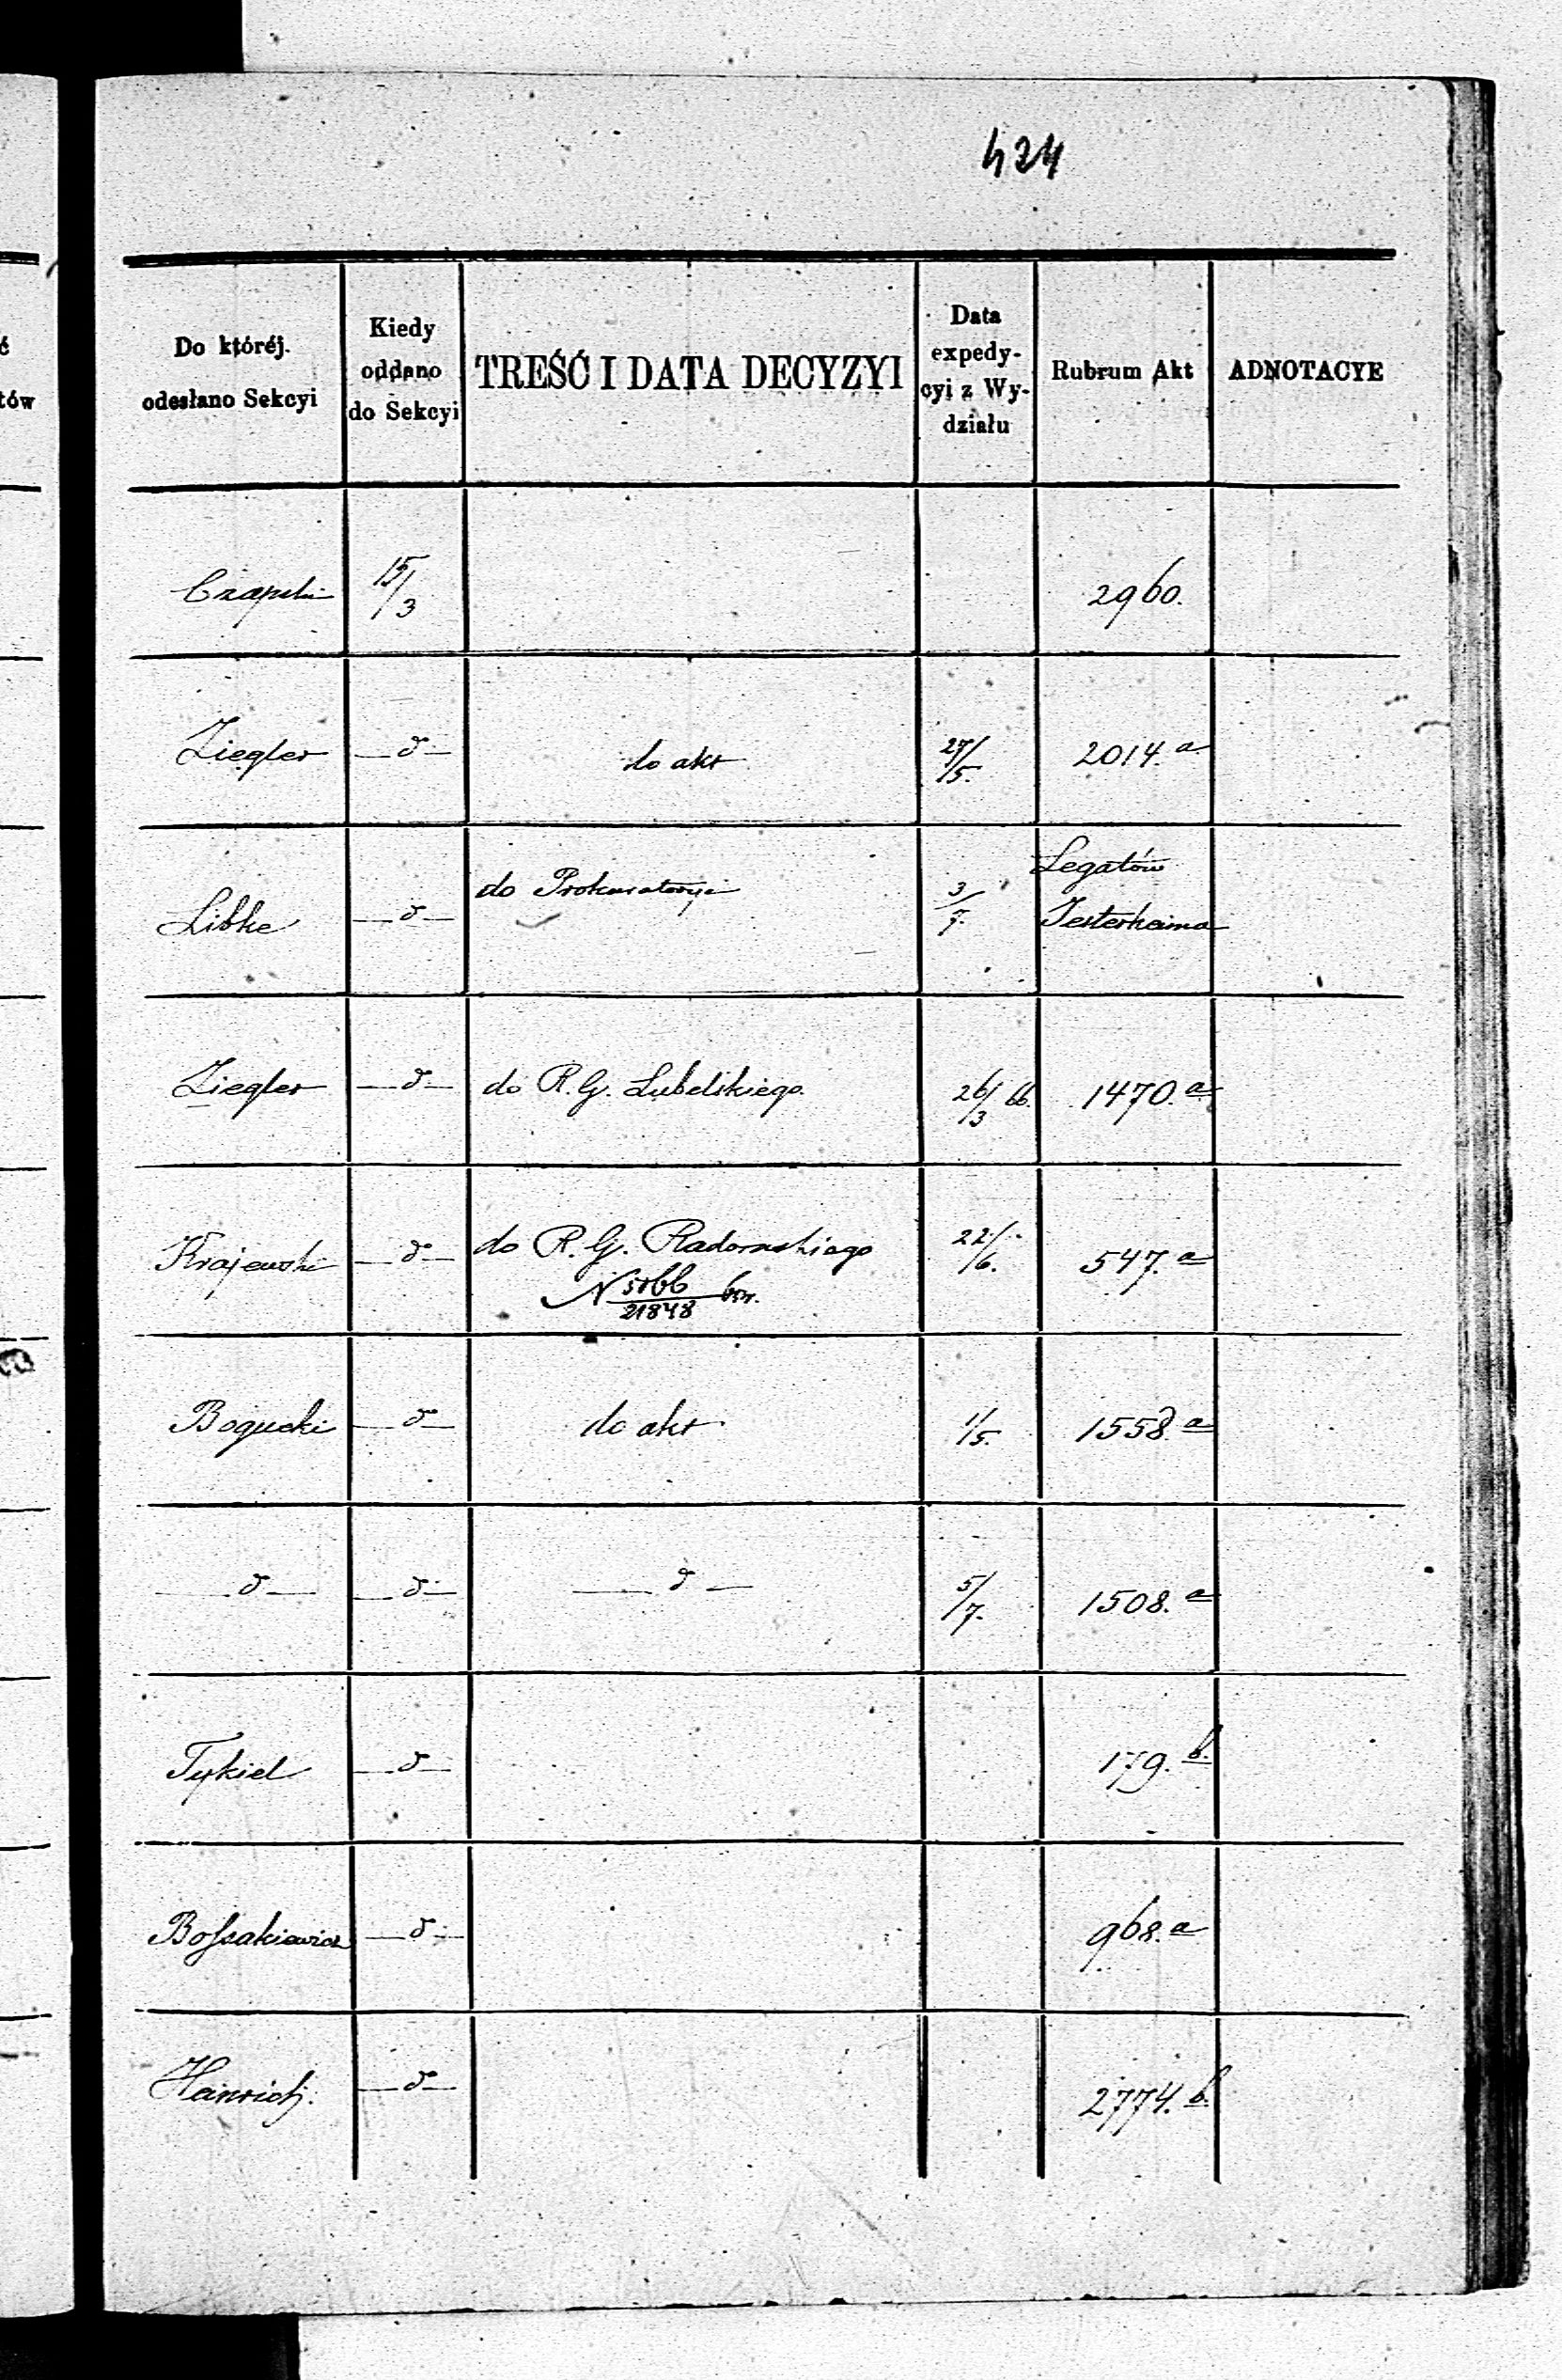 424
Do któréj odesłano Sekcyi
Kiedy oddano do Sekcyi
TREŚĆ I DATA DECYZYI
Data expedycyi z Wydziału
Rubrum Akt
ADNOTACYE
Czapski 15/3 2960.
Ziegler —d— do akt 27/5. 2014.a
Libke —d— do Prokuratoryi 3/7. Legatów
Jesterheima
Ziegler —d— do R. G. Lubelskiego. 26/3 66. 1470.a
Krajewski —d— do R. G. Radomskiego 22/6. 547.a
N 21848
Bogucki —d— do akt 1/5. 1558.a
—d— —d— —d— 5/7. 1508.a
Tykiel —d— 179.b.
Bossakiewicz —d— 968.a
Heinrich. —d— 2774.b.